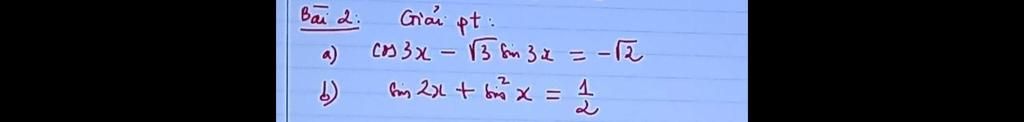 Bài 2: Giải pt:
a) cos 3x − √3 sin 3x = −√2
b) sin 2x + sin² x = 1/2